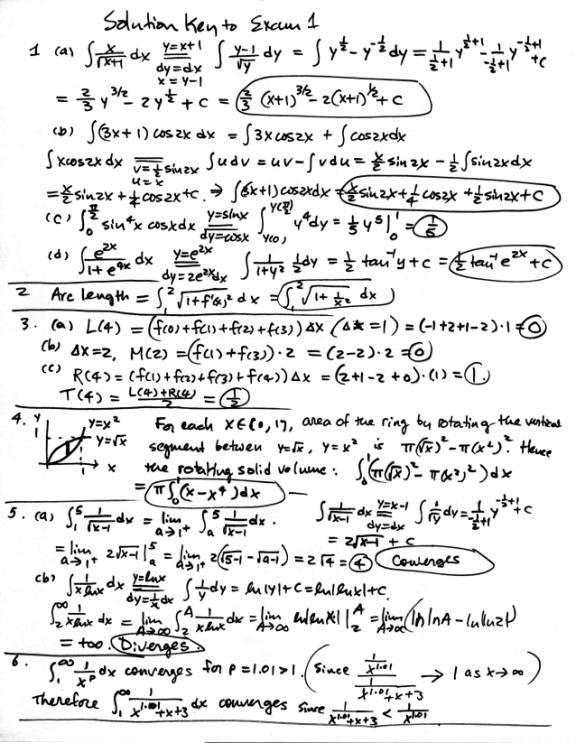 Solution Key to Exam 1
1 (a) ∫ x/√(x+1) dx  y=x+1 = dy=dx x=y-1  ∫ (y-1)/√y dy = ∫ y^(1/2) - y^(-1/2) dy = 1/(1/2+1) y^(1/2+1) - 1/(-1/2+1) y^(-1/2+1) + c
= 2/3 y^(3/2) - 2y^(1/2) + c = 2/3 (x+1)^(3/2) - 2(x+1)^(1/2) + c
(b) ∫(3x+1) cos2x dx = ∫3x cos2x + ∫cos2x dx
∫x cos2x dx  v=1/2 sin2x = u=x  ∫u dv = uv - ∫v du = x/2 sin2x - 1/2 ∫sin2x dx
= x/2 sin2x + 1/4 cos2x + c. → ∫(3x+1) cos2x dx = x/2 sin2x + 1/4 cos2x + 1/2 sin2x + c
(c) ∫_0^(π/2) sin^4 x cosx dx  y=sinx = dy=cosx  ∫_y(0)^y(π/2) y^4 dy = 1/5 y^5 |_0^1 = 1/5
(d) ∫ e^(2x)/(1+e^(4x)) dx  y=e^(2x) = dy=2e^(2x)dx  ∫ 1/(1+y^2) 1/2 dy = 1/2 tan^(-1) y + c = 1/2 tan^(-1) e^(2x) + c
2 Arc length = ∫_1^2 √(1+f'(x)^2) dx = ∫_1^2 √(1+1/x^2) dx
3. (a) L(4) = (f(0)+f(1)+f(2)+f(3)) Δx (Δx=1) = (-1+2+1-2)·1 = 0
(b) Δx=2, M(2) = (f(1)+f(3))·2 = (2-2)·2 = 0
(c) R(4) = (f(1)+f(2)+f(3)+f(4)) Δx = (2+1-2+0)·(1) = 1.
T(4) = (L(4)+R(4))/2 = 1/2
4. y 1 y=x^2 y=√x 1 x
For each x∈[0,1], area of the ring by rotating the vertical
segment between y=√x, y=x^2 is π(√x)^2 - π(x^2)^2. Hence
the rotating solid volume: ∫_0^1 (π(√x)^2 - π(x^2)^2) dx
= π∫_0^1 (x-x^4) dx
5. (a) ∫_1^5 1/√(x-1) dx = lim_(a→1+) ∫_a^5 1/√(x-1) dx.  ∫ 1/√(x-1) dx  y=x-1 = dy=dx  ∫ 1/√y dy = 1/(-1/2+1) y^(-1/2+1) + c
= 2√(x-1) + c
= lim_(a→1+) 2√(x-1) |_a^5 = lim_(a→1+) 2(√(5-1) - √(a-1)) = 2√4 = 4 Converges
(b) ∫ 1/(x lnx) dx  y=lnx = dy=1/x dx  ∫ 1/y dy = ln|y| + c = ln|lnx| + c.
∫_2^∞ 1/(x lnx) dx = lim_(A→∞) ∫_2^A 1/(x lnx) dx = lim_(A→∞) ln|lnx| |_2^A = lim_(A→∞) (ln lnA - ln ln2)
= +∞. Diverges.
6. ∫_1^∞ 1/x^p dx converges for p=1.01>1. (Since (1/x^1.01)/(1/(x^1.01+x+3)) → 1 as x→∞)
Therefore ∫_1^∞ 1/(x^1.01+x+3) dx converges since 1/(x^1.01+x+3) < 1/x^1.01